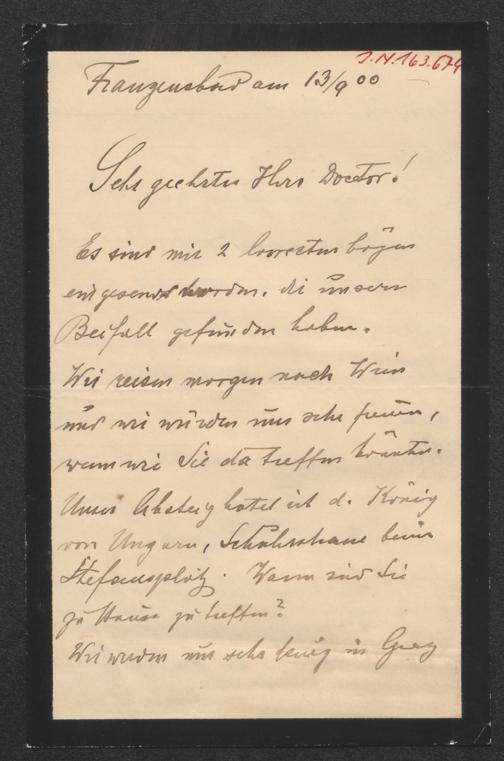 J.N.163.674
Franzensbad am 13/9 00
Sehr geehrter Herr Doctor!
Es sind mir 2 Correcturbögen
eingesendet worden, die unsern
Beifall gefunden haben.
Wir reisen morgen nach Wien
und wir würden uns sehr freuen,
wenn wir Sie da treffen könnten.
Unser Absteighotel ist d. König
von Ungarn, Schulerstrasse beim
Stefansplatz. Wann sind Sie
zu Hause zu treffen?
Wir werden uns sehr in